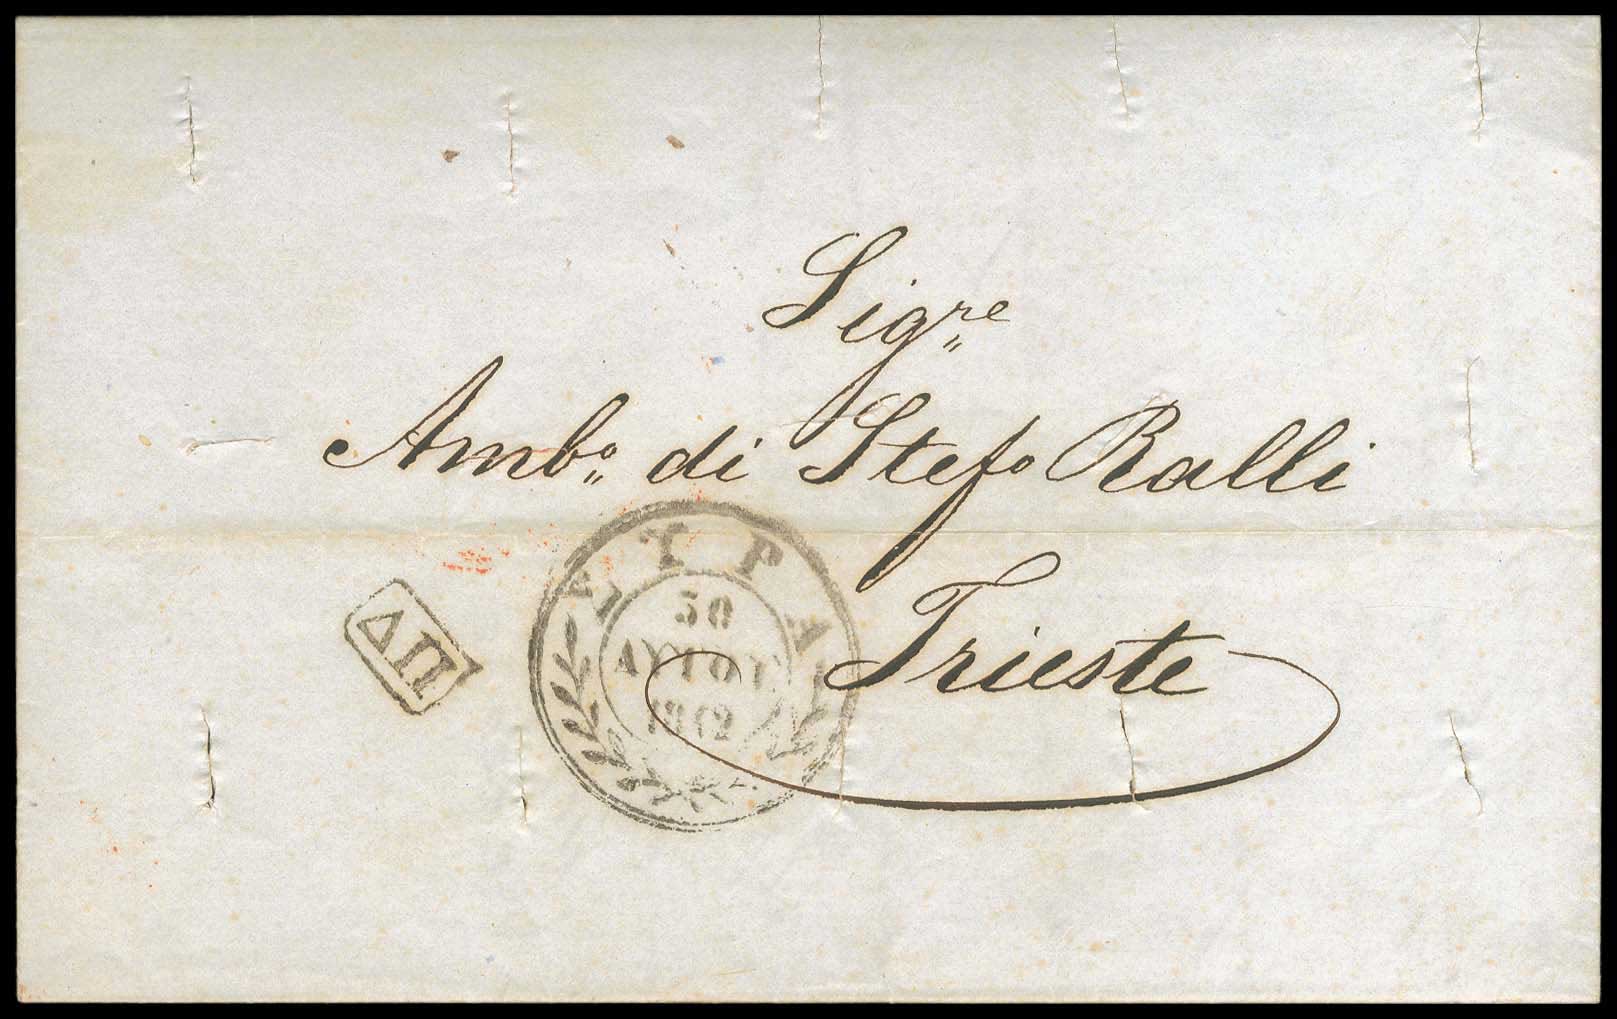 Sigre
Ambo. di Stefo Ralli
Trieste
ΣΥΡΑ
30
ΑΥΓΟΥ
1842
ΔΠ